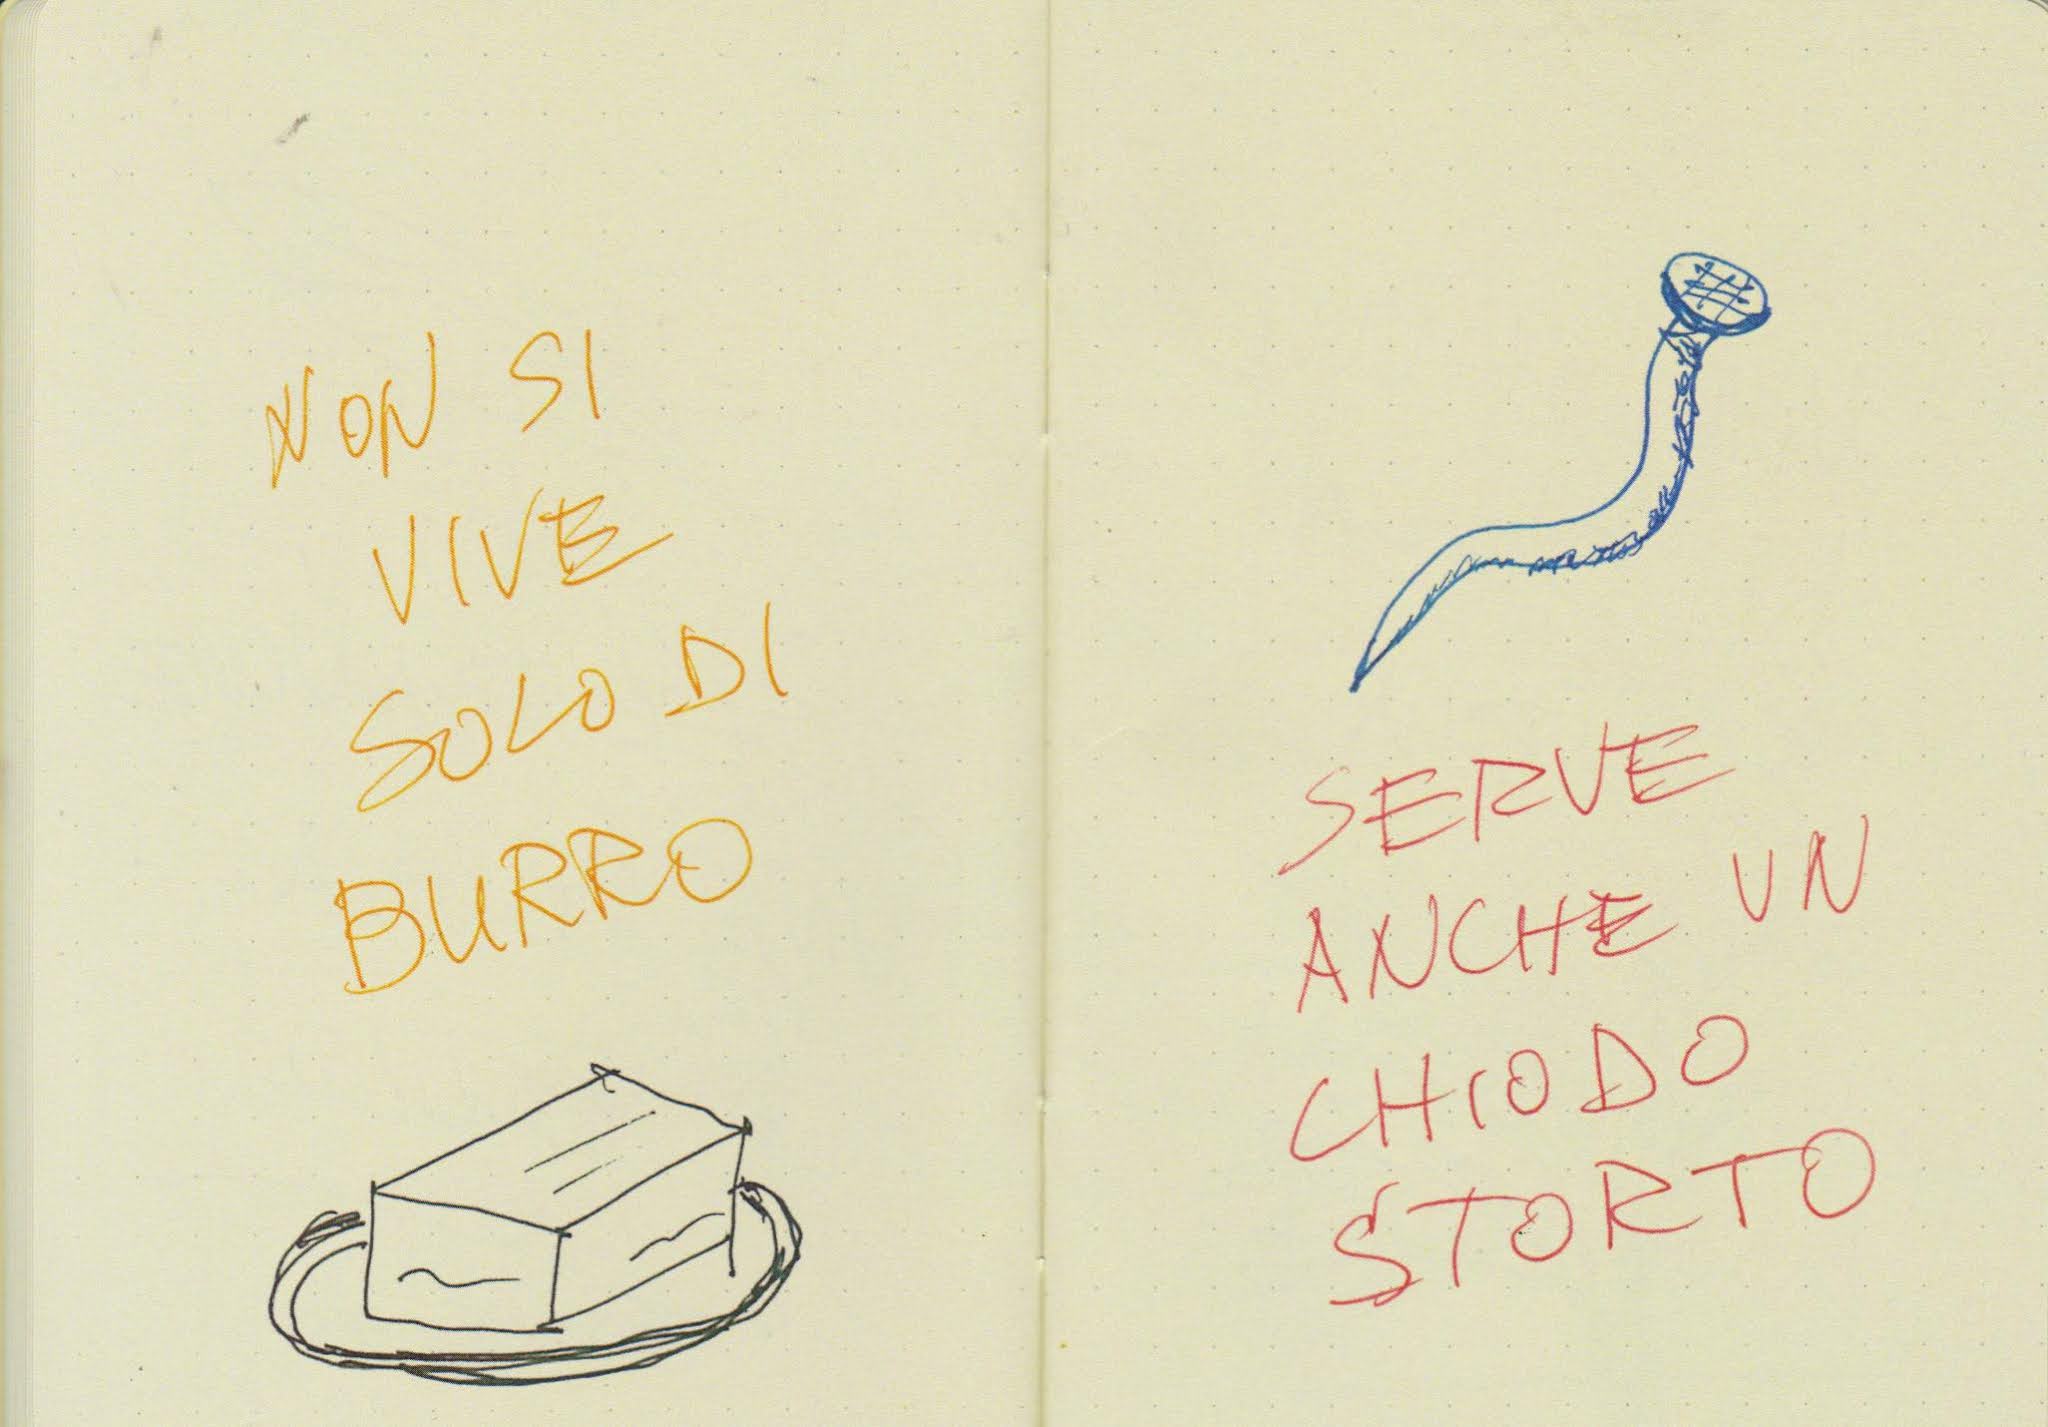 NON SI
VIVE
SOLO DI
BURRO
SERVE
ANCHE UN
CHIODO
STORTO